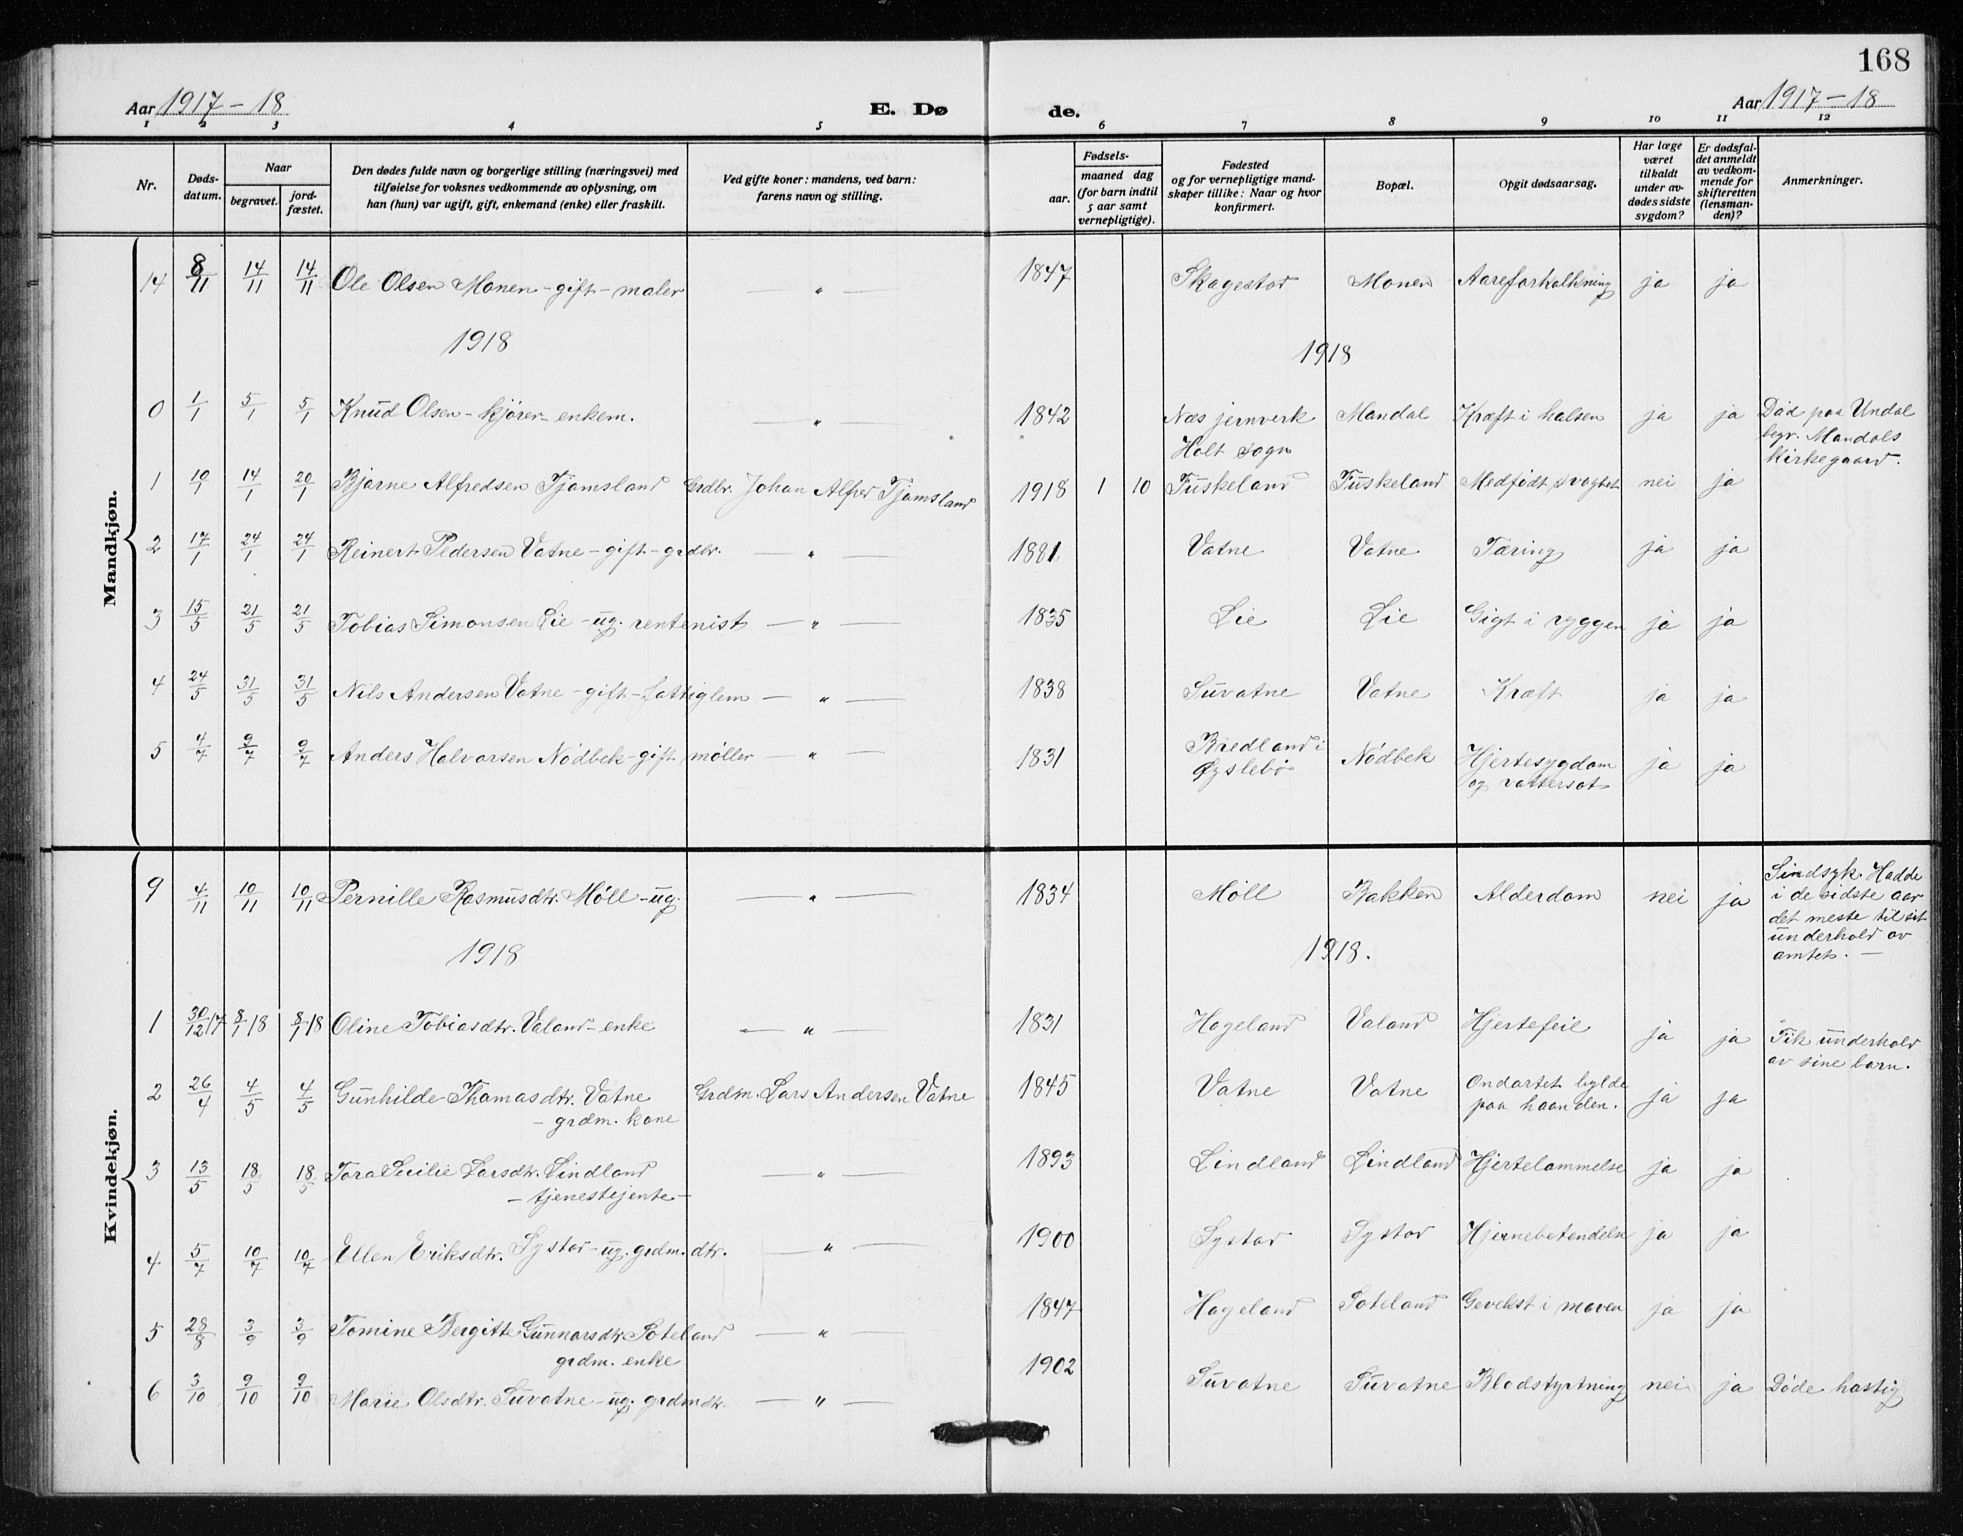 168
Aar 1917-18
E. Dø
de.
Aar 1917-18
1 2 3 4 5 6 7 8 9 10 11 12
Nr.
Døds-
datum.
Naar
begravet.
jord-
fæstet.
Den dødes fulde navn og borgerlige stilling (næringsvei) med
tilføielse for voksnes vedkommende av oplysning, om
han (hun) var ugift, gift, enkemand (enke) eller fraskilt.
Ved gifte koner: mandens, ved barn:
farens navn og stilling.
Fødsels-
aar.
maaned dag
(for barn indtil
5 aar samt
vernepligtige).
Fødested
og for vernepligtige mand-
skaper tillike: Naar og hvor
konfirmert.
Bopæl.
Opgit dødsaarsag.
Har læge
været
tilkaldt
under av-
dødes sidste
sygdom?
Er dødsfal-
det anmeldt
av vedkom-
mende for
skifteretten
(lensman-
den)?
Anmerkninger.
Mandkjøn.
14 8/11 14/11 14/11 Ole Olsen Monen - gift - maler — " — 1847 Skagestad Monen Aareforkalkning ja ja
1918 1918
0 1/1 5/1 5/1 Knud Olsen - kjører - enkem. — " — 1842 Næs jernverk Mandal Kræft i halsen ja ja Død paa Undal
Holt sogn begr. Mandals
kirkegaard.
1 10/1 14/1 20/1 Bjarne Alfredsen Tjomsland Grdbr. Johan Alfred Tjomsland 1918 1 10 Fuskeland Fuskeland Medfødt svaghet nei ja
2 17/1 24/1 24/1 Reinert Pedersen Vatne - gift - grdbr. — " — 1881 Vatne Vatne Tæring ja ja
3 15/5 21/5 21/5 Tobias Simonsen Lie - ug. rentenist — " — 1835 Lie Lie Gigt i ryggen ja ja
4 24/5 31/5 31/5 Nils Andersen Vatne - gift - fattiglem — " — 1838 Suvatne Vatne Kræft ja ja
5 4/7 9/7 9/7 Anders Halvorsen Nødbek - gift møller — " — 1831 Bredland i Nødbek Hjertesygdom ja ja
Øyslebø og vattersot
Kvindekjøn.
9 4/11 10/11 10/11 Pernille Rasmusdtr. Møll - ug. — " — 1834 Møll Bakken Alderdom nei ja Sindsyk. Hadde
i de sidste aar
det meste til sit
underhold av
amtet. —
1918 1918.
1 30/12 17 8/1 18 8/1 18 Oline Tobiasdtr. Valand - enke — " — 1831 Hageland Valand Hjertefeil ja ja Fik underhold
av sine barn.
2 26/4 4/5 4/5 Gunhilde Thomasdtr. Vatne Grdm. Lars Andersen Vatne 1845 Vatne Vatne Ondartet bylde ja ja
- grdm. kone paa haanden.
3 13/5 18/5 18/5 Tora Secilie Larsdtr. Lindland — " — 1893 Lindland Lindland Hjertelammelse ja ja
- tjenestejente -
4 5/7 10/7 10/7 Ellen Eriksdtr. Systad - ug. grdm. dtr. — " — 1900 Systad Systad Hjernebetendelse ja ja
5 28/8 3/9 3/9 Tomine Bergitte Gunnarsdtr. Soteland — " — 1847 Hageland Soteland Gevekst i maven ja ja
grdm. enke
6 3/10 9/10 9/10 Marie Olsdtr. Suvatne - ug. grdm dtr. — " — 1902 Suvatne Suvatne Blodstyrtning nei ja Døde hastig